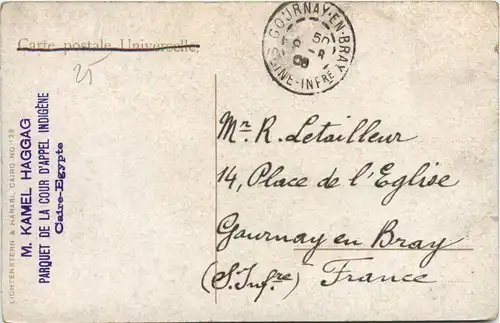 Carte postale Universelle.
25
GOURNAY-EN-BRAY
SEINE-INFRE
50
8
08
Mr. R. Letailleur
14, Place de l'Eglise
Gournay en Bray
(S. Infre) France
M. KAMEL HAGGAG
PARQUET DE LA COUR D'APPEL INDIGÈNE
Caire-Egypte
LICHTENSTERN & HARARI, CAIRO, NO.